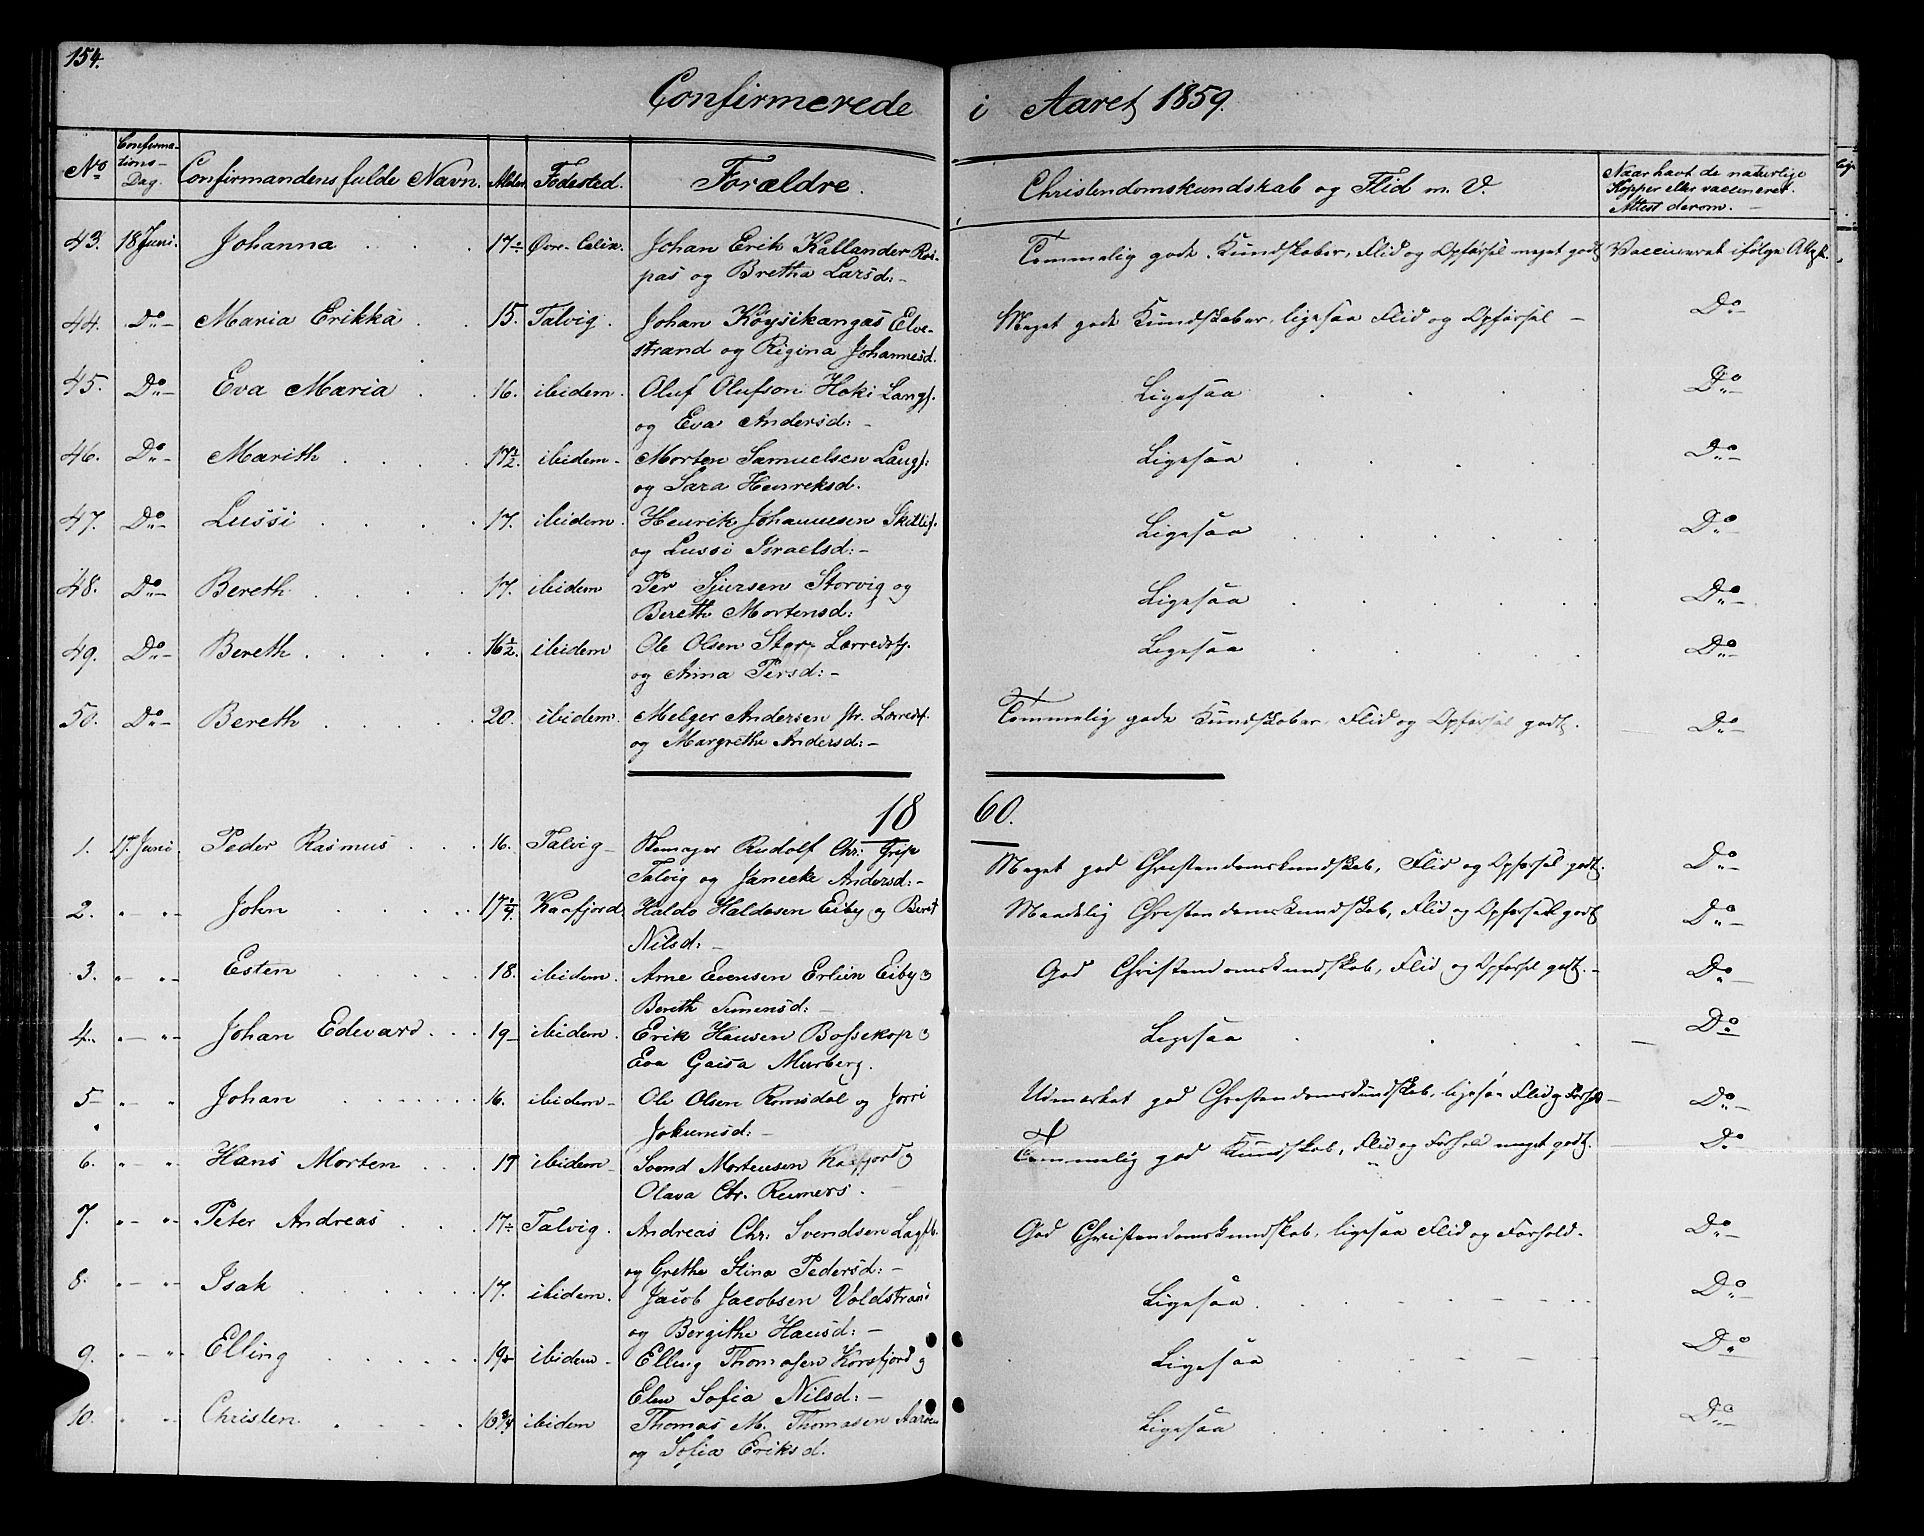 154.
Confirmerede i Aaret 1859.
No Confirmations-Dag. Confirmandens fulde Navn. Alder. Fødested. Forældre. Christendomskundskab og Flid m. V. Naar havt de naturlige Kopper eller vaccineret. Attest derom.
43. 18 Juni. Johanna 17 Øvre-Calix. Johan Erik Kallander Ros- Temmelig gode Kundskaber, Flid og Opførsel meget godt Vaccineret ifølge Attest.
pas og Bretha Larsd:
44. Do Maria Erikka 15. Talvig. Johan Köysikangas Elve- Meget gode Kundskaber, ligesaa Flid og Opførsel Do
strand og Rigina Johannesd.
45. Do Eva Maria 16. ibidem. Oluf Olufson Hoki Langf. Ligesaa Do
og Eva Andersd:
46. Do Marith 17½. ibidem Morten Samuelsen Langf: Ligesaa Do
og Sara Henreksd.
47. Do Lussi 17. ibidem. Henrik Johannesen Skillef. Ligesaa Do
og Lussi Israelsd:
48. Do Bereth 17. ibidem Per Sjursen Storvig og Ligesaa Do
Bereth Mortensd:
49. Do Bereth 16½. ibidem Ole Olsen Stor Lerredsfj. Ligesaa Do
og Anna Persd:
50. Do Bereth 20. ibidem. Melger Andersen str. Lerredsf. Temmelig gode Kundskaber, Flid og Opførsel godt. Do
og Margrethe Andersd:
1860.
1. 17. Juni Peder Rasmus 16. Talvig Rudolf Chr: Grip Meget god Christendomskundskab, Flid og Opførsel godt. Do
Talvig og Janecke Andersd:
2. " " John 17 Kaafjord Haldo Haldosen Eiby og Beret Maadelig Christendomskundskab, Flid og Opførsel godt Do
Nilsd:
3. " " Esten 18. ibidem. Arne Evensen Erlien Eiby og God Christendomskundskab, Flid og Opførsel godt. Do
Bereth Simensd:
4. " " Johan Edevard 19 ibidem. Erik Hansen Bossekop og Ligesaa Do
Eva Gaisa Murberg.
5 " " Johan 16. ibidem Ole Olsen Romsdal og Jorri Udmærket god Christendomskundskab, ligesaa Flid og Forhold Do
Jokumsd:
6. " " Hans Morten 17 ibidem Svend Mortensen Kaafjord og Temmelig god Kundskab, Flid og Forhold meget godt. Do
Olava Chr. Reimers.
7. " " Peter Andreas 17 Talvig. Andreas Chr: Svendsen God Christendomskundskab, ligesaa Flid og Forhold. Do
og Grethe Stina Pedersd:
8. " " Isak 17. ibidem. Jacob Jacobsen Voldstrand Ligesaa. Do
og Bergithe Hansd:
9. " " Elling 19 ibidem Elling Thomasen Korsfjord og Ligesaa Do
Elen Sofia Nilsd:
10. " " Christen 16¾ ibidem Thomas M. Thomasen Ligesaa Do
og Sofia Eriksd.